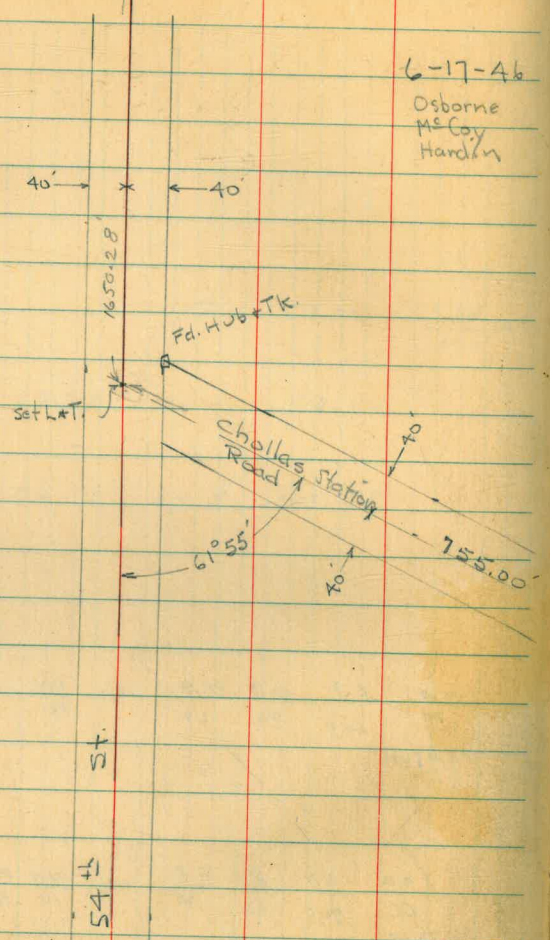 6-17-46
Osborne
McCoy
Hardin
40'
40'
1650.28'
Fd. Hub & Tk.
Set L&T.
Chollas Station
Road
40'
755.00'
61°55'
40'
54th St.